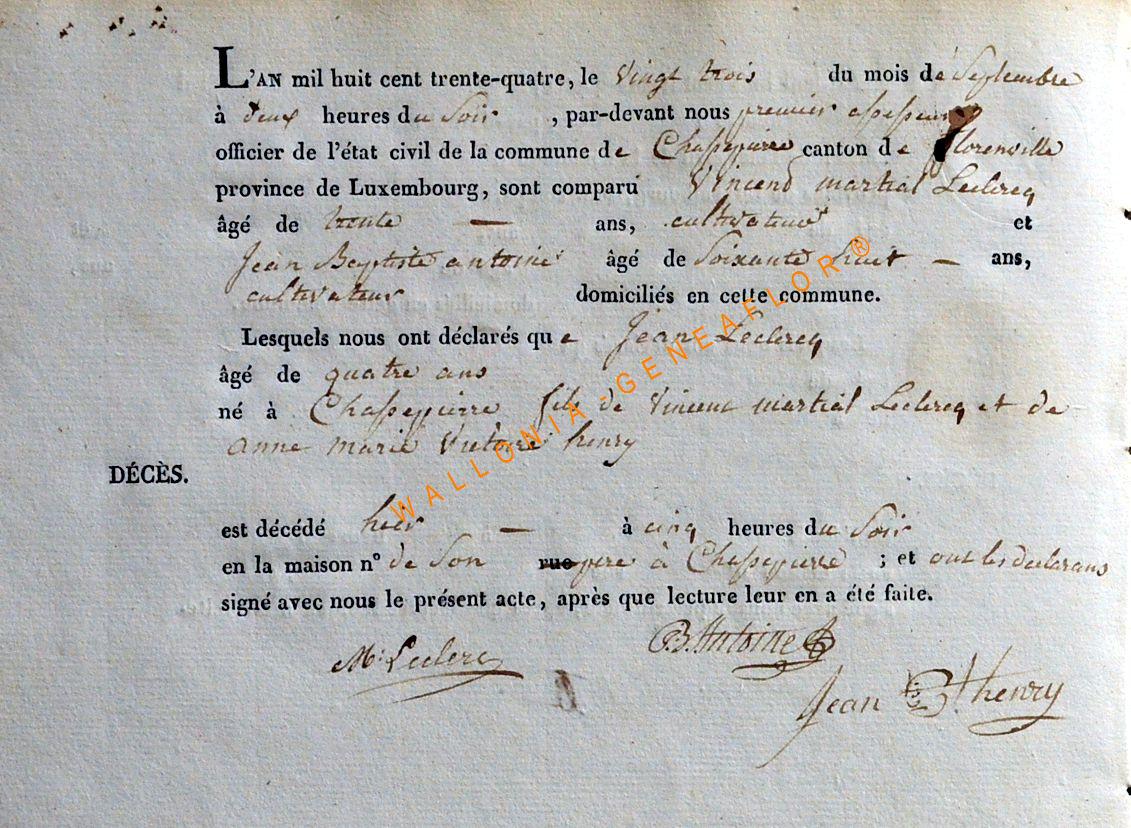 L'AN mil huit cent trente-quatre, le Vingt trois du mois de Septembre
à deux heures du Soir , par-devant nous premier assesseur
officier de l'état civil de la commune de Chassepierre canton de florenville
province de Luxembourg, sont comparu Vincend martial Leclercq
âgé de trente — ans, cultivateur et
Jean Baptiste antoine âgé de Soixante huit — ans,
cultivateur domiciliés en cette commune.
Lesquels nous ont déclarés que Jean Leclercq
âgé de quatre ans
né à Chassepierre fils de Vincent martial Leclercq et de
anne marie Victoire henry
DÉCÈS.
est décédé hier — à cinq heures du Soir
en la maison n° de Son rue pere à Chassepierre ; et ont les declarans
signé avec nous le présent acte, après que lecture leur en a été faite.
M. Leclerc
B. Antoine
Jean Bte henry
WALLONIA - GENEAFLOR ®